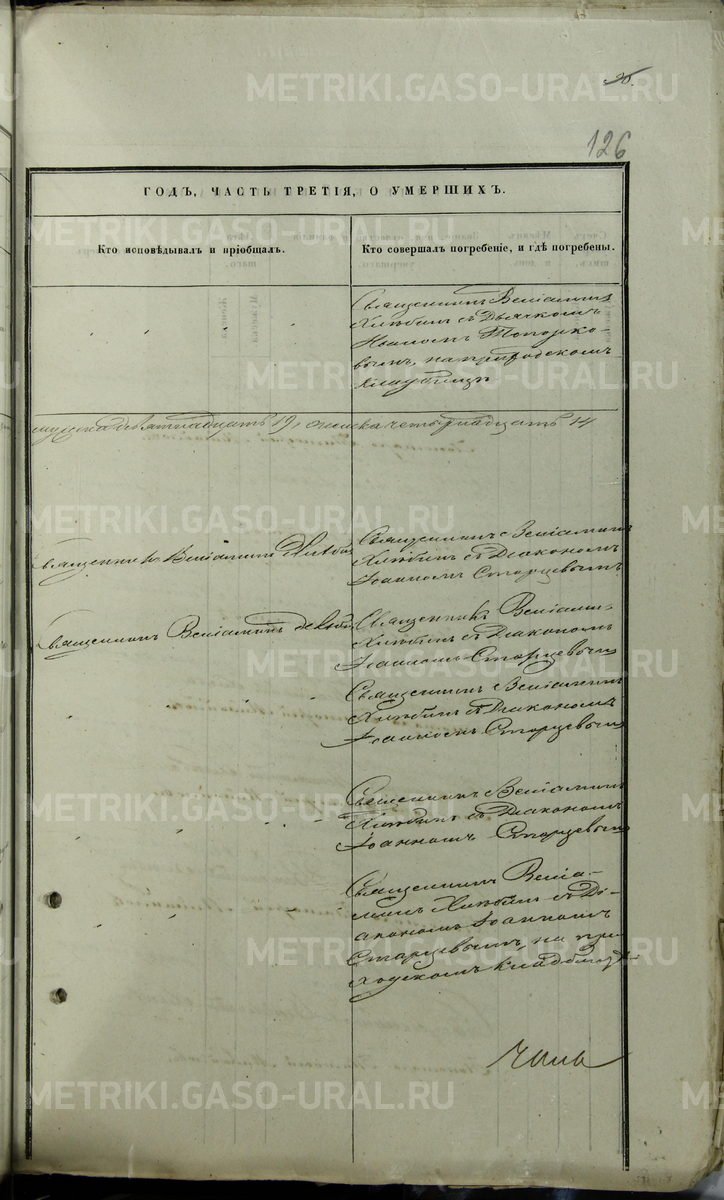 126
ГОДЪ, ЧАСТЬ ТРЕТІЯ, О УМЕРШИХЪ.
Кто исповѣдывалъ и пріобщалъ.
Кто совершалъ погребеніе, и гдѣ погребены.
Священникъ Веніаминъ
Хлѣбинъ съ Дьячкомъ
Иоанномъ Топорко-
вымъ, на приходскомъ
кладбищѣ
мужеска девятнадцать 19, женска четырнадцать 14
Священникъ Веніаминъ
Священникъ Веніаминъ
Хлѣбинъ съ Діакономъ
Іоанномъ Старцевымъ
Священникъ Веніаминъ
Священникъ Веніами-
Хлѣбинъ съ Діакономъ
Іоанномъ Старцевымъ
Священникъ Веніаминъ
Хлѣбинъ съ Діакономъ
Іоанномъ Старцевымъ
Священникъ Веніаминъ
Хлѣбинъ съ Діакономъ
Іоанномъ Старцевымъ
Священникъ Веніа-
минъ Хлѣбинъ съ Ді-
акономъ Іоанномъ
Старцевымъ, на при-
ходскомъ кладбищѣ
METRIKI.GASO-URAL.RU